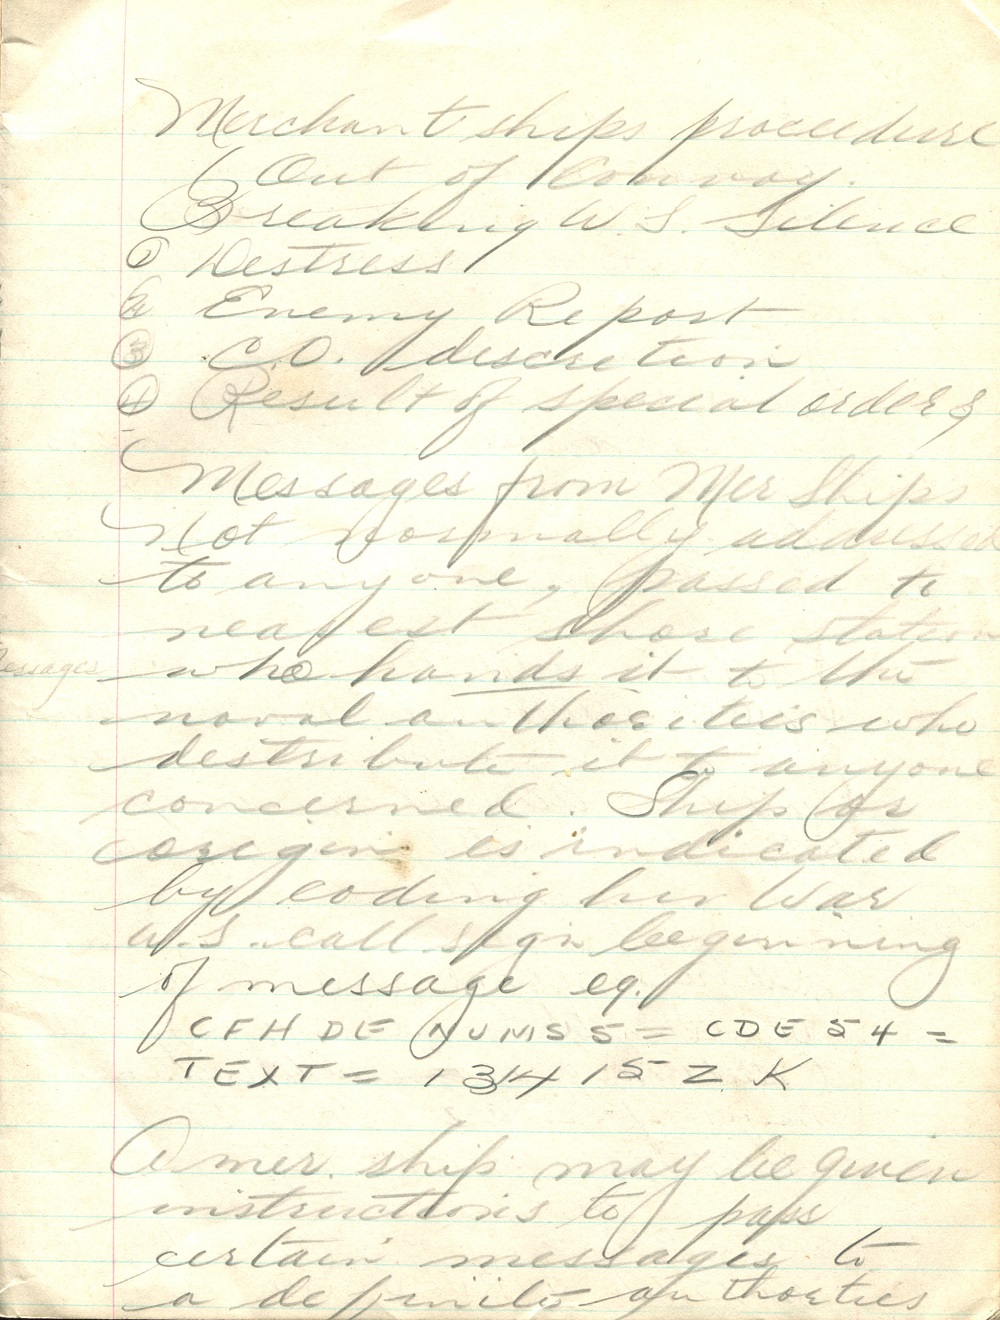 Merchant ships proceedure
Out of Convoy.
Breaking W.S. Silence
① Destress
② Enemy Report
③ C.O. discretion
④ Result of special orders
Messages from Mer Ships
Not normally addressed
to anyone, passed to
nearest shore station
who hands it to the
Messages
naval authorities who
destribute it to anyone
concerned. Ship or
coregin is indicated
by coding her War
W.S. call sign beginning
of message eg.
CFH DE NUMS 5 = CDE 54 =
TEXT = 131415Z K
A mer. ship may be given
instructions to pass
certain messages to
a definite authorties